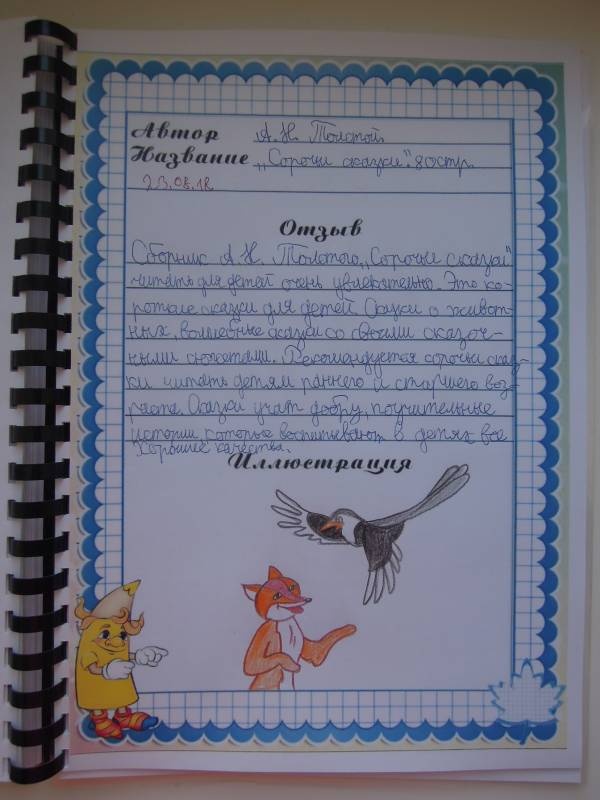 Автор А.Н. Толстой.
Название „Сорочьи сказки". 80стр.
23.08.18
Отзыв
Сборник А.Н. Толстого „Сорочьи сказки"
читать для детей очень увлекательно. Это ко-
роткие сказки для детей. Сказки о живот-
ных, волшебные сказки со своими сказоч-
ными сюжетами. Рекомендуется сорочьи сказ-
ки читать детям раннего и старшего воз-
раста. Сказки учат добру, поучительные
истории которые воспитывают в детях все
хорошие качества.
Иллюстрация